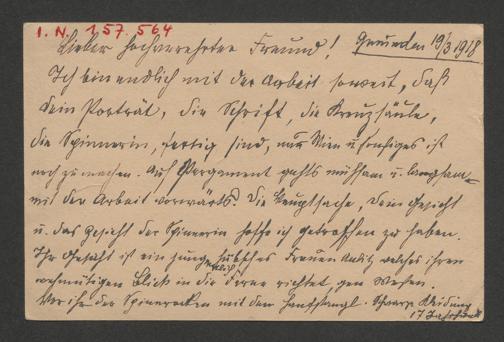 I. N. 157.564
Lieber hochverehrter Freund! Gmunden 19/3 1918
Ich bin endlich mit der Arbeit soweit, daß
Dein Porträt, die Schrift, die Kreuzsäule,
die Spinnerin, fertig sind, nur Wien u sonstiges ist
noch zu machen. Auf Pergament gehts mühsam u. langsam
mit der Arbeit vorwärts. Die Hauptsache, Dein Gesicht
u. das Gesicht der Spinnerin hoffe ich getroffen zu haben.
Ihr Gesicht ist ein junges hübsches Frauen Antlitz welches ihren
wehmütigen Blick in die Ferne richtet, gen Westen.
Vor ihr der Spinnrocken mit dem Hanfstengl. Schwarze Kleidung
17 Jahrhundt